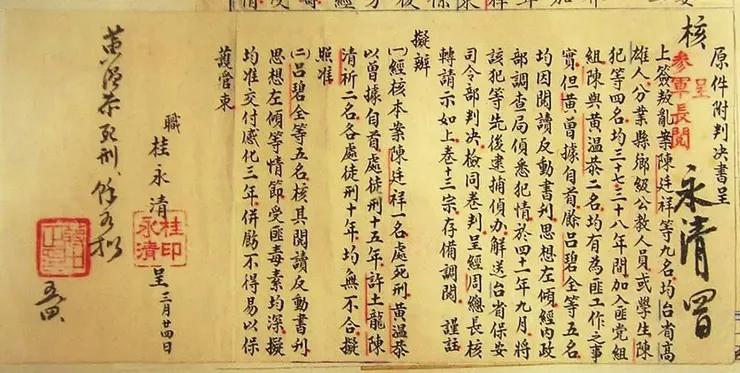 原件附判決書呈
核
呈
參軍長閱
永清
上簽叛亂案陳廷祥等九名均台省高
雄人分業縣鄉級公教人員或學生陳
犯等四名均三七三十八年間加入匪黨組
組陳與黃溫恭二名均有為匪工作之事
實但黃曾據自首餘呂碧全等五名
均因閱讀反動書刊思想左傾經內政
部調查局偵悉犯情於四十一年九月將
該犯等先後逮捕偵辦解送台省保安
司令部判決檢同卷判呈經周總長核
轉請示如上卷十三宗存備調閱 謹註
擬辦
㈠經核本案陳廷祥一名處死刑黃溫恭
以曾據自首處徒刑十五年許土龍陳
清祈二名各處徒刑十年均無不合擬
照准
㈡呂碧全等五名核其閱讀反動書刊
思想左傾等情節受匪毒素均深擬
均准交付感化三年併飭不得易以保
護管束
職 桂永清 呈 三月廿四日
桂永清印
黃溫恭死刑，餘如擬
蔣中正印
五四